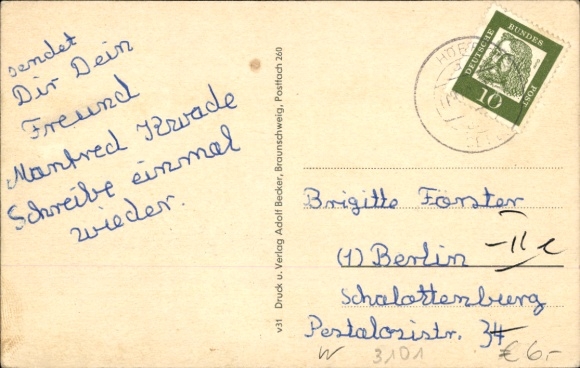 sendet
Dir Dein
Freund
Manfred Kwade
Schreibe einmal
wieder.
v31 Druck u. Verlag Adolf Becker, Braunschweig, Postfach 260
DEUTSCHE BUNDES POST
10
Brigitte Förster
(1) Berlin
Schalottenburg
Pestalozistr. 34
W 3101 € 6.-